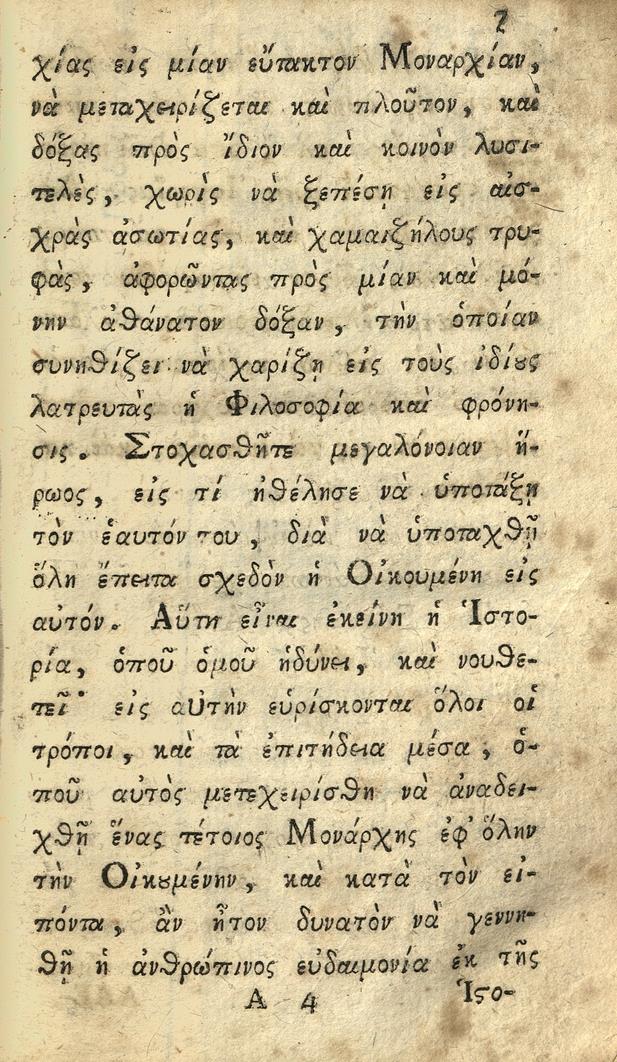 7
χίας εἰς μίαν εὔτακτον Μοναρχίαν,
νὰ μεταχειρίζεται καὶ πλοῦτον, καὶ
δόξας πρὸς ἴδιον καὶ κοινὸν λυσι-
τελὲς, χωρὶς νὰ ξεπέσῃ εἰς αἰσ-
χρὰς ἀσωτίας, καὶ χαμαιζήλους τρυ-
φὰς, ἀφορῶντας πρὸς μίαν καὶ μό-
νην ἀθάνατον δόξαν, τὴν ὁποίαν
συνηθίζει νὰ χαρίζῃ εἰς τοὺς ἰδίȣς
λατρευτὰς ἡ Φιλοσοφία καὶ φρόνη-
σις. Στοχασθῆτε μεγαλόνοιαν ἥ-
ρωος, εἰς τί ἠθέλησε νὰ ὑποτάξῃ
τὸν ἑαυτόν του, διὰ νὰ ὑποταχθῇ
ὅλη ἔπειτα σχεδὸν ἡ Οἰκουμένη εἰς
αὐτόν. Αὕτη εἶναι ἐκείνη ἡ Ἱστο-
ρία, ὁποῦ ὁμοῦ ἡδύνει, καὶ νουθε-
τεῖ· εἰς αὐτὴν εὑρίσκονται ὅλοι οἱ
τρόποι, καὶ τὰ ἐπιτήδεια μέσα, ὁ-
ποῦ αὐτὸς μετεχειρίσθη νὰ ἀναδει-
χθῇ ἕνας τέτοιος Μονάρχης ἐφ' ὅλην
τὴν Οἰκȣμένην, καὶ κατὰ τὸν εἰ-
πόντα, ἂν ἦτον δυνατὸν νὰ γεννη-
θῇ ἡ ἀνθρώπινος εὐδαιμονία ἐκ τῆς
Α 4 Ἱϛο-